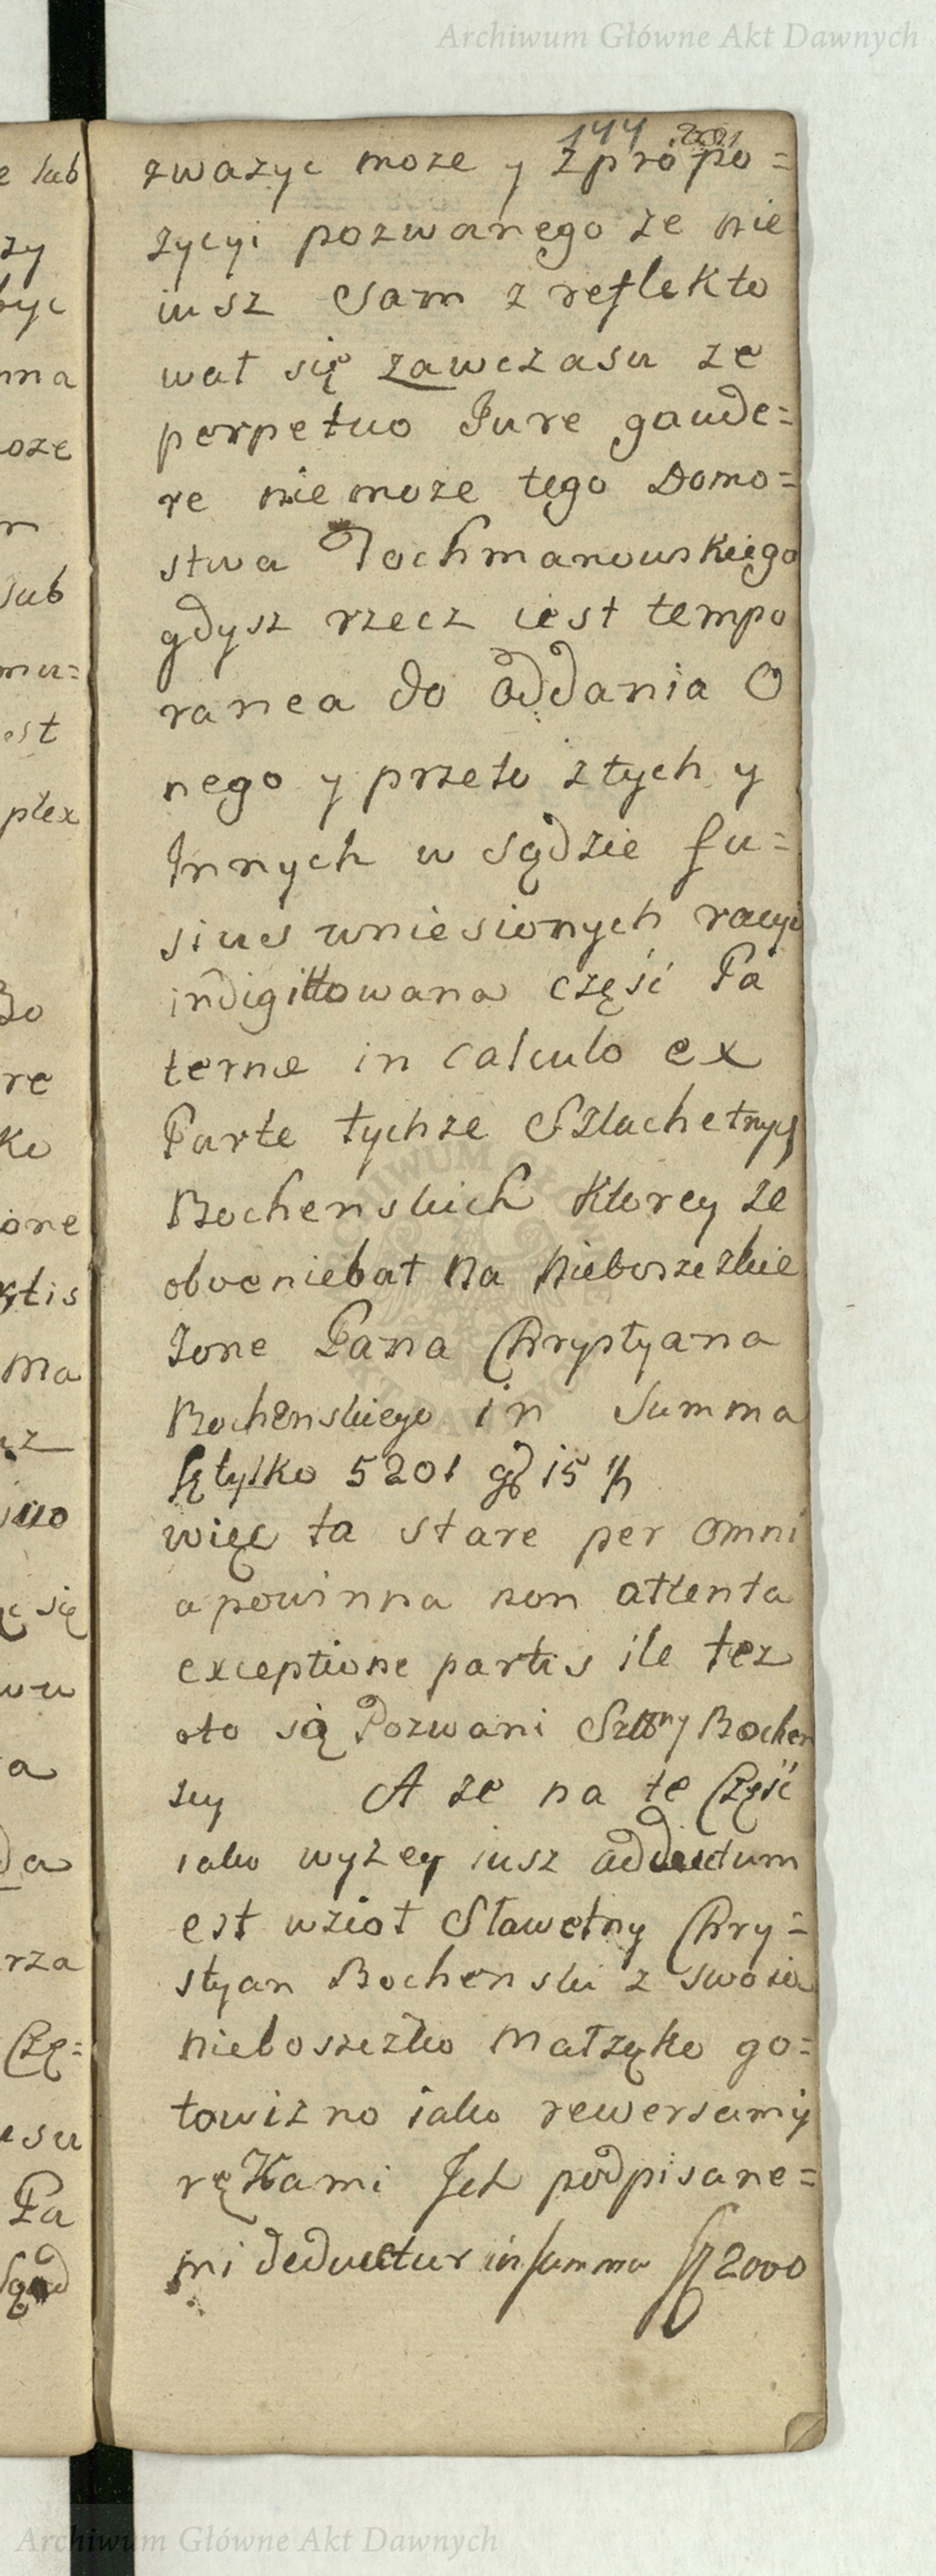 Archiwum Główne Akt Dawnych
144
zwazyc moze y z propo=
zycyi pozwanego ze nie
iusz sam zreflekto
wał się zawczasu ze
perpetuo Jure gaude=
re nie moze tego Domo=
stwa Tochmanowskiego
gdysz rzecz iest tempo
ranea do oddania O
nego y przeto z tych y
Innych w sądzie fu=
sius wniesionych racyi
indigittowana część Pa
terne in calculo ex
Parte tychze Szlachetnych
Bochenskich Ktorey ze
obveniebat na Nieboszczkie
Zone Pana Chrystyana
Bochenskiego in Summa
tylko 5201 15
więc ta stare per omni
a powinna non attenta
exceptione partis ile tez
oto są Pozwani Bochen
scy A ze na te Część
iako wyzey iusz adductum
est wziot Sławetny Chry=
styan Bochenski z swoia
nieboszczko Małzyko go=
towizno iako rewersamy
rękami Ich podpisane=
mi deducetur in summa 2000
e lub
zy
byc
nna
oze
m
sub
mu=
est
plex
Bo
re
Ko
ione
ktis
ma
no
ć się
wu
a
da
rza
Czę=
esu
Pa
Sąd
Archiwum Główne Akt Dawnych